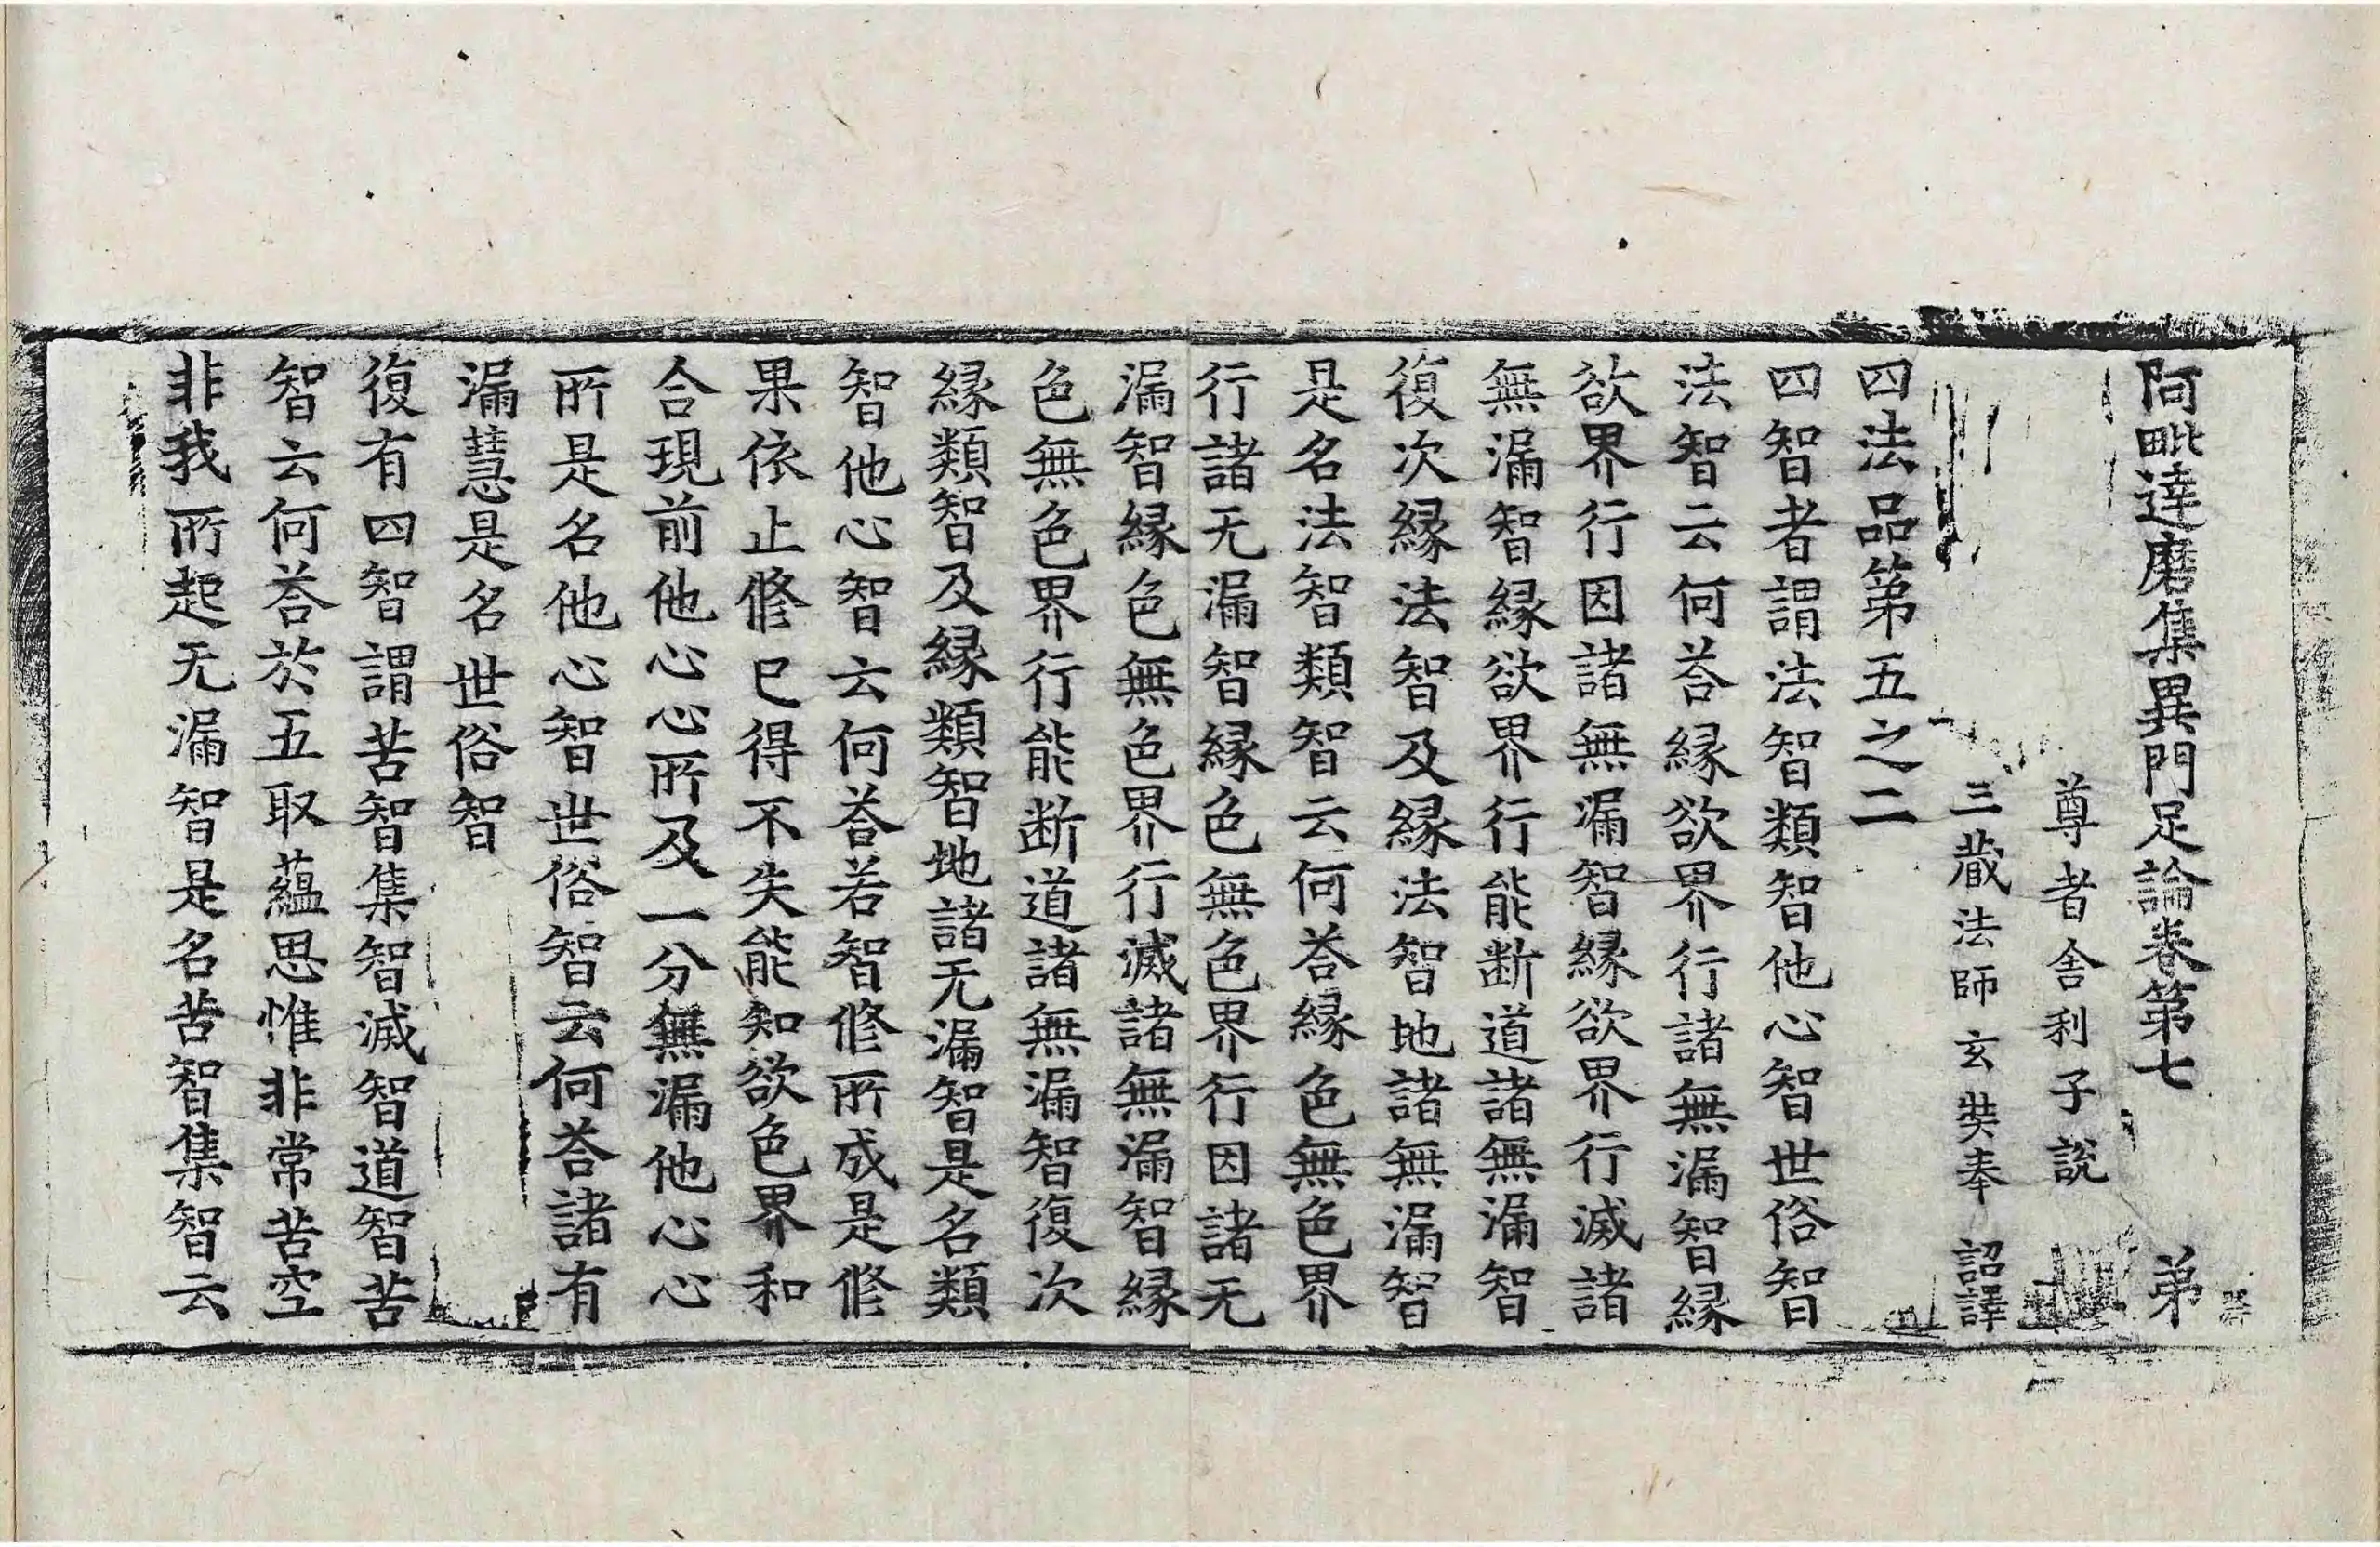 阿毗達磨集異門足論卷第七　弟
尊者舍利子說
三藏法師玄奘奉　詔譯
四法品第五之二
四智者謂法智類智他心智世俗智
法智云何荅緣欲界行諸無漏智緣
欲界行因諸無漏智緣欲界行滅諸
無漏智緣欲界行能断道諸無漏智
復次緣法智及緣法智地諸無漏智
是名法智類智云何荅緣色無色界
行諸无漏智緣色無色界行因諸无
漏智緣色無色界行滅諸無漏智緣
色無色界行能断道諸無漏智復次
緣類智及緣類智地諸无漏智是名類
智他心智云何荅若智修所成是修
果依止修已得不失能知欲色界和
合現前他心心所及一分無漏他心心
所是名他心智世俗智云何荅諸有
漏慧是名世俗智
復有四智謂苦智集智滅智道智苦
智云何荅於五取蘊思惟非常苦空
非我所起无漏智是名苦智集智云